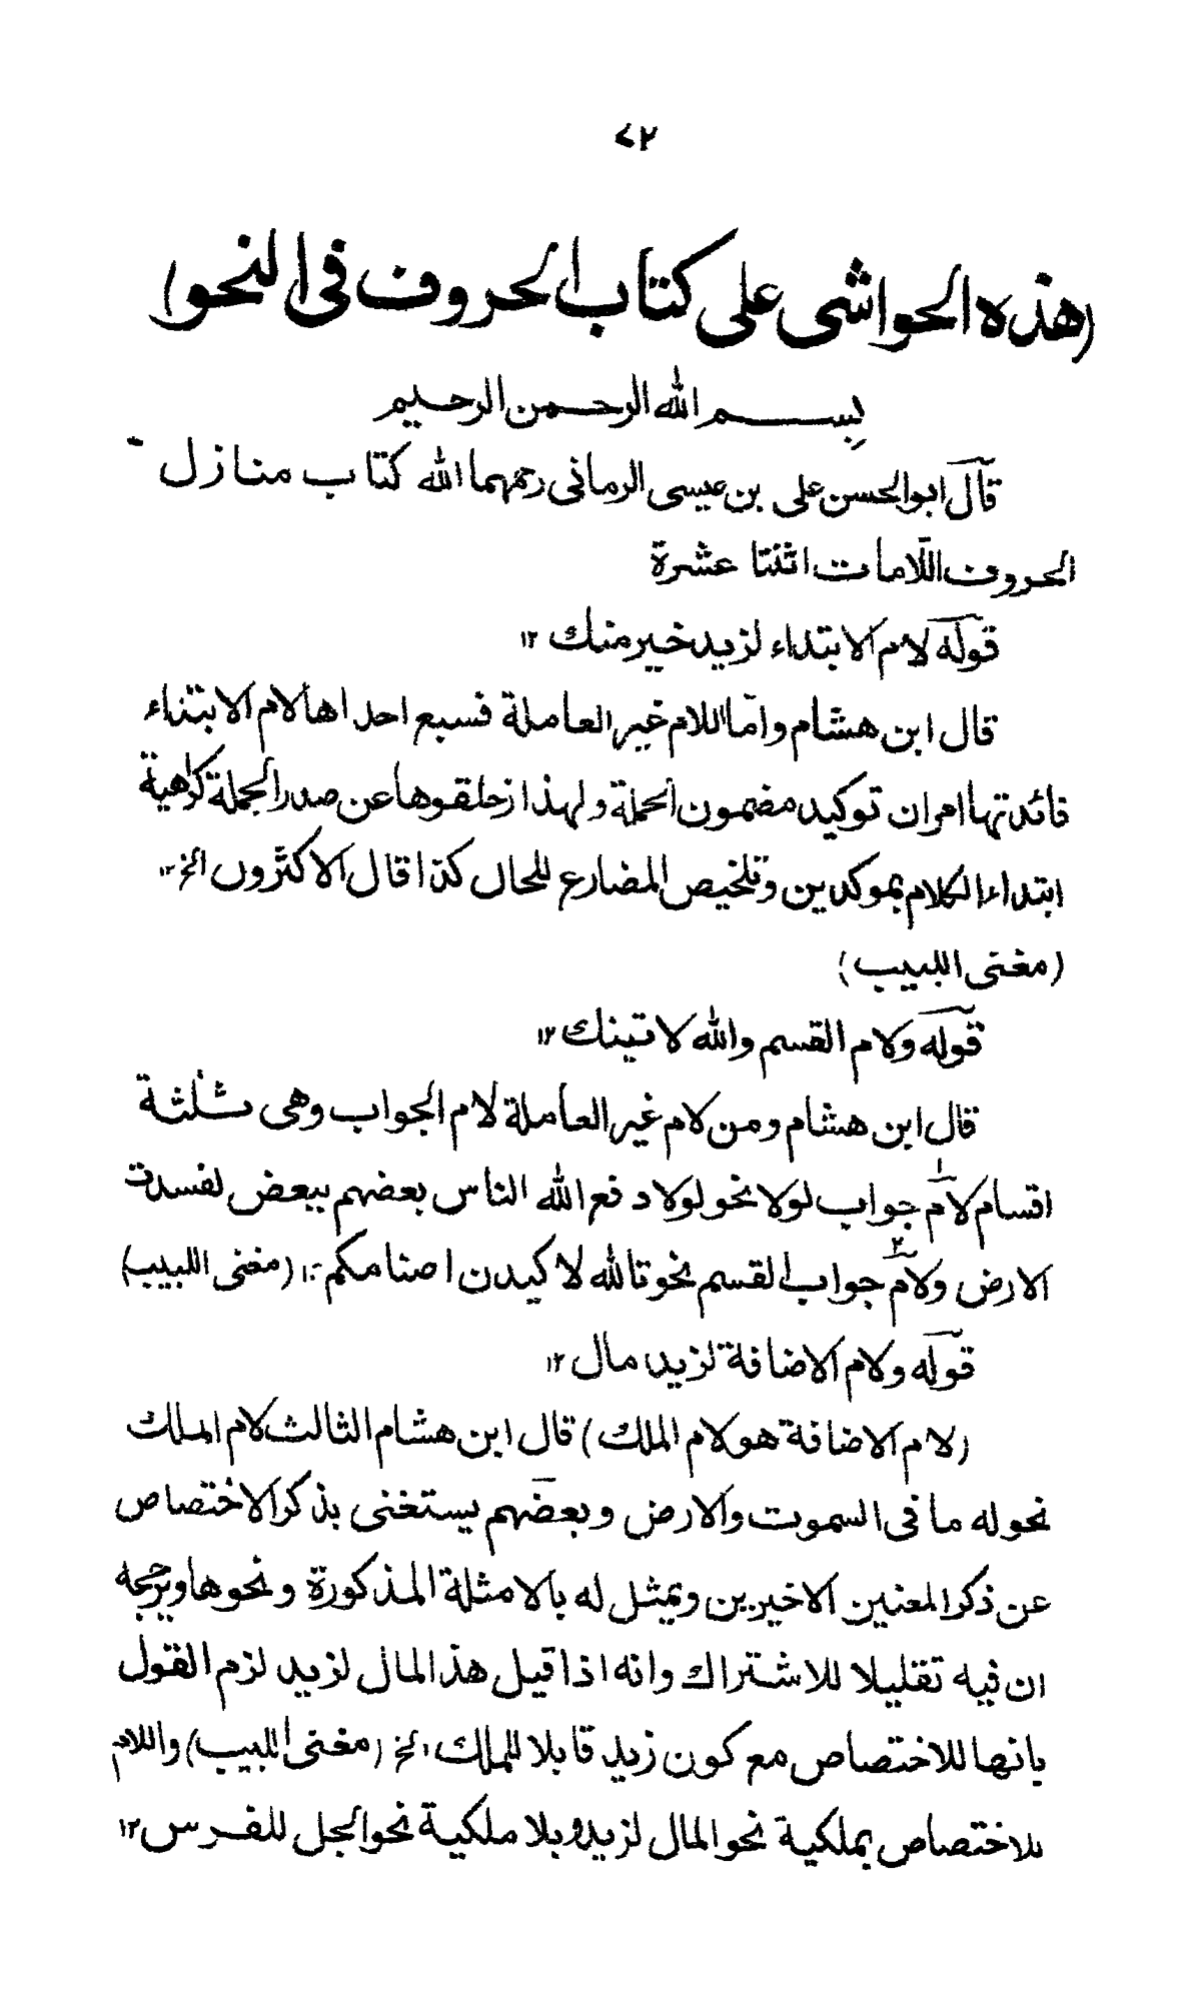 ٧٢
(هذه الحواشى على كتاب الحروف فى النحو)
بسم الله الرحمن الرحيم
قال ابوالحسن على بن عيسى الرمانى رحمهما الله كتاب منازل
الحروف اللامات اثنتا عشرة
قوله لام الابتداء لزيد خير منك ١٢
قال ابن هشام واما اللام غير العاملة فسبع احداها لام الابتداء
فائدتها امران توكيد مضمون الجملة ولهذا زحلقوها عن صدر الجملة كراهية
ابتداء الكلام بموكدين وتلخيص المضارع للحال كذا قال الاكثرون الخ ١٢
(مغنى اللبيب)
قوله ولام القسم والله لاتينك ١٢
قال ابن هشام ومن لام غير العاملة لام الجواب وهى ثلثة
اقسام لام ١ جواب لولا نحو لولا دفع الله الناس بعضهم ببعض لفسدت
الارض ولام ٢ جواب القسم نحو تالله لاكيدن اصنامكم ١٢ (مغنى اللبيب)
قوله ولام الاضافة لزيد مال ١٢
(لام الاضافة هو لام الملك) قال ابن هشام الثالث لام الملك
نحو له ما فى السموت والارض وبعضهم يستغنى بذكر الاختصاص
عن ذكر المعنين الاخيرين ويمثل له بالامثلة المذكورة ونحوها ويرجحه
ان فيه تقليلا للاشتراك وانه اذا قيل هذ المال لزيد لزم القول
بانها للاختصاص مع كون زيد قابلا للملك الخ (مغنى اللبيب) واللام
للاختصاص بملكية نحو المال لزيد وبلا ملكية نحو الجل للفرس ١٢